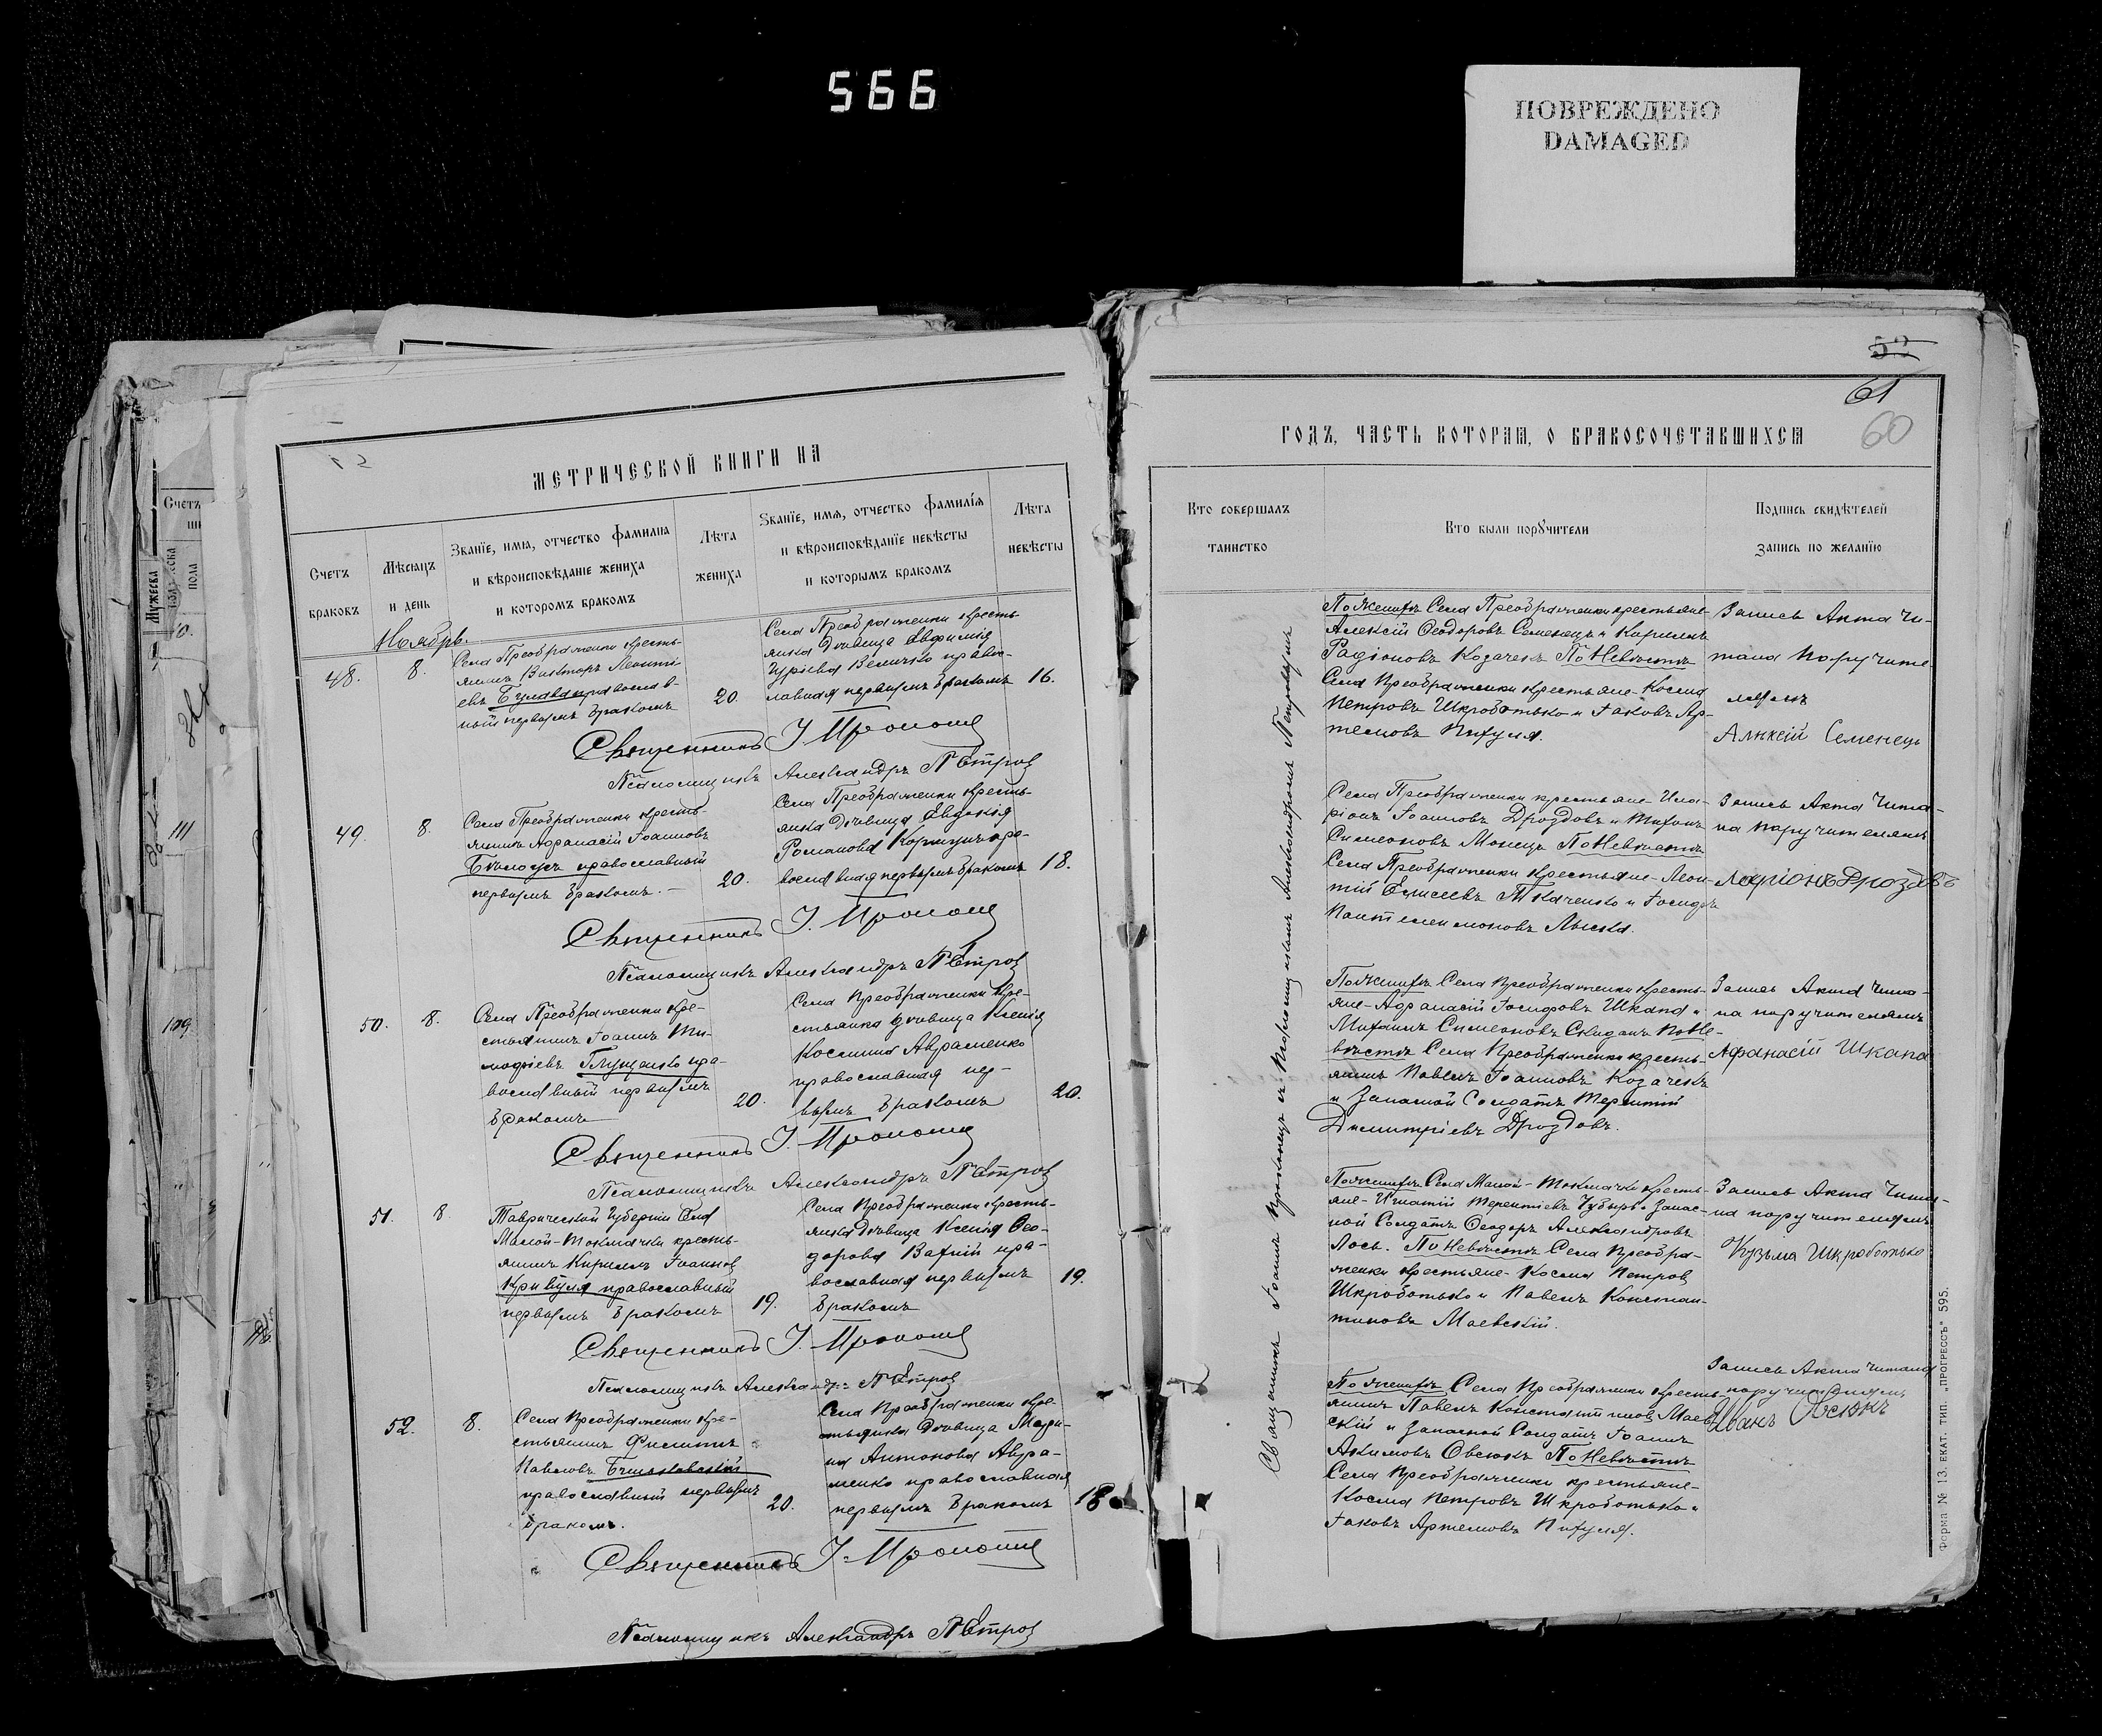 566
ПОВРЕЖДЕНО
DAMAGED
52
61
60
МЕТРИЧЕСКОЙ КНИГИ НА
Счетъ
браковъ
Мѣсяцъ
и день
Званїе, имя, отчество фамилія
и вѣроисповѣданіе жениха
и которомъ бракомъ
Лѣта
жениха
Званїе, имя, отчество фамилїя
и вѣроисповѣданїе невѣсты
и которымъ бракомъ
Лѣта
невѣсты
Ноябрь.
48.
8.
Села Преображенки кресть-
янинъ Викторъ Леонті-
евъ Булава православ-
ный первымъ бракомъ
20.
Села Преображенки кресть-
янка дѣвица Евфимія
Гуріева Величко право-
славная первымъ бракомъ
16.
Священникъ І Прокопе
Псаломщикъ Александръ Петров
49.
8.
Села Преображенки кресть-
янинъ Афанасій Іоанновъ
Бѣлоусъ православный
первымъ бракомъ.
20.
Села Преображенки кресть-
янка дѣвица Евдокія
Романова
вославная первымъ бракомъ
18.
Священникъ І. Прокопе
Псаломщикъ Александръ Петров
50.
8.
Села Преображенки кре-
стьянинъ Іоаннъ Ти-
мофіевъ Глущенко пра-
вославный первымъ
бракомъ
20.
Села Преображенки кре-
стьянка дѣвица Ксенія
Космина Авраменко
православная пер-
вымъ бракомъ
20.
Священникъ І. Прокопе
Псаломщикъ Александръ Петров
51.
8.
Таврической Губерніи Села
Малой-Токмачки кресть-
янинъ Кириллъ Іоаннов
Кривуля православный
первымъ бракомъ
19.
Села Преображенки кресть-
янка дѣвица Ксенія Ѳео-
дорова Вахній пра-
вославная первымъ
бракомъ
19.
Священникъ І. Прокопе
Псаломщикъ Александръ Петров
52.
8.
Села Преображенки кре-
стьянинъ Филиппъ
Павловъ
православный первымъ
бракомъ.
20.
Села Преображенки кре-
стьянка дѣвица
Антонова Авра-
менко православная
первымъ бракомъ
18
Священникъ І. Прокопе
Псаломщикъ Александръ Петров
ГОДЪ, ЧАСТЬ КОТОРАЯ, О БРАКОСОЧЕТАВШИХСЯ
Кто совершалъ
таинство
Кто были поручители
Подпись свидѣтелей
запись по желанїю
Священникъ Іоаннъ съ Псаломщикомъ Александромъ Петровымъ
По женихѣ Села Преображенки крестьяне
Алексій Ѳеодоровъ Семенецъ и Кириллъ
Радіоновъ Козачекъ По Невѣстѣ
Села Преображенки крестьяне Косма
Петровъ Шкроботько и Іаковъ Ар-
темовъ Пихуля.
Запись Акта Чи-
тана поручите-
лямъ
Алексій Семенець
Села Преображенки крестьяне Ила-
ріонъ Іоанновъ Дроздовъ и Тихонъ
Симеоновъ Монецъ По Невѣстѣ
Села Преображенки крестьяне Леон-
тій Елисеевъ Ткаченко и Іосифъ
Пантелеимоновъ Лыска.
Запись Акта Чита-
на поручителямъ
Ларіонъ Дроздовъ
По женихѣ Села Преображенки кресть-
яне Афанасій Іосифовъ Шкапа и
Михаилъ Симеоновъ Скиданъ По Не-
вѣстѣ Села Преображенки кресть-
янинъ Павелъ Іоанновъ Козачекъ
и Запасной Солдатъ Терентій
Димитріевъ Дроздовъ.
Запись Акта Чита-
на поручителямъ
Афанасій Шкапа
По женихѣ Села Малой-Токмачки кресть-
яне Игнатій Терентіевъ Чубырь и Запас-
ной Солдатъ Ѳеодоръ Александровъ
Лось. По Невѣстѣ Села Преобра-
женки крестьяне Косма Петров
Шкроботько и Павелъ Констан-
тиновъ Маевскій.
Запись Акта Чита-
на поручителямъ
Кузьма Шкроботько
По женихѣ Села Преображенки кресть-
янинъ Павелъ Константиновъ Маев-
скій и Запасной Солдатъ Іоаннъ
Акимовъ Овсюкъ По Невѣстѣ
Села Преображенки крестьяне
Косма Петровъ Шкроботько и
Іаковъ Артемовъ Пихуля.
Запись Акта Читана
поручителямъ
Иванъ Овсюкъ
Форма № 13. ЕКАТ. ТИП. „ПРОГРЕССЪ“ 595.
Счетъ
Мужеска
пола
111
109